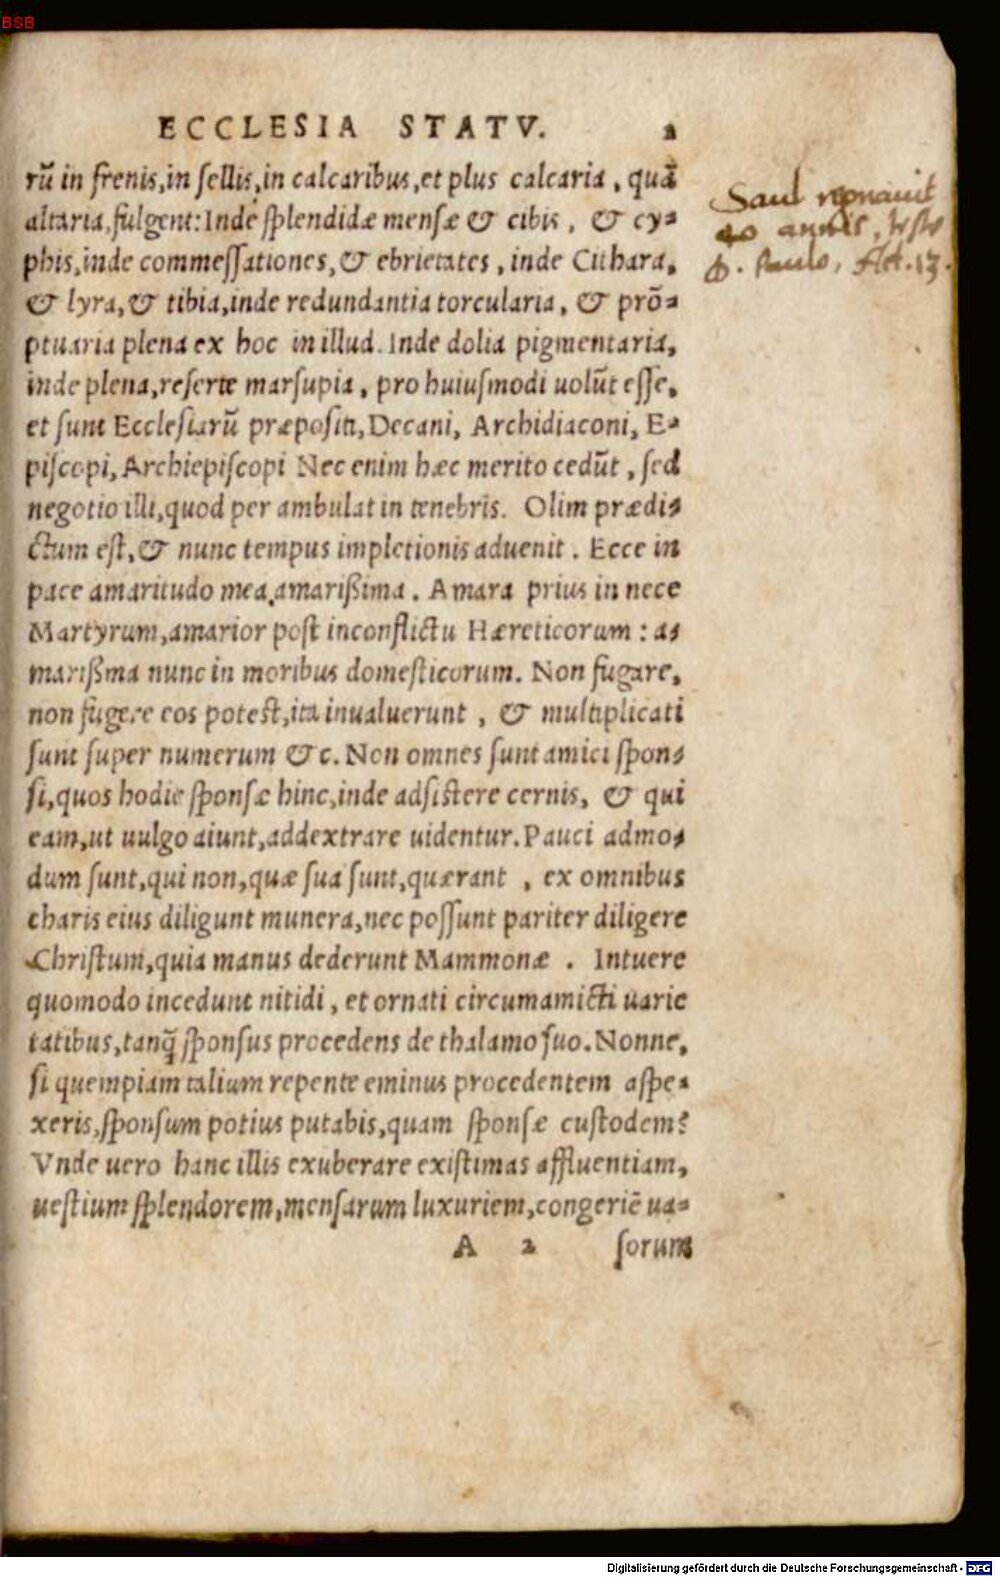 BSB
ECCLESIA STATV. 2
rũ in frenis, in sellis, in calcaribus, et plus calcaria, quã
altaria, fulgent: Inde splendidæ mensæ & cibis, & cy-
phis, inde commessationes, & ebrietates, inde Cithara,
& lyra, & tibia, inde redundantia torcularia, & prõ-
ptuaria plena ex hoc in illud. Inde dolia pigmentaria,
inde plena, referte marsupia, pro huiusmodi uolũt esse,
et sunt Ecclesiarũ præpositi, Decani, Archidiaconi, E-
piscopi, Archiepiscopi Nec enim hæc merito cedũt, sed
negotio illi, quod per ambulat in tenebris. Olim prædi-
ctum est, & nunc tempus impletionis aduenit. Ecce in
pace amaritudo mea, amarißima. Amara prius in nece
Martyrum, amarior post in conflictu Hæreticorum: a-
marißima nunc in moribus domesticorum. Non fugare,
non fugere eos potest, ita inualuerunt, & multiplicati
sunt super numerum &c. Non omnes sunt amici spon-
si, quos hodie sponsæ hinc, inde adsistere cernis, & qui
eam, ut uulgo aiunt, addextrare uidentur. Pauci admo-
dum sunt, qui non, quæ sua sunt, quærant, ex omnibus
charis eius diligunt munera, nec possunt pariter diligere
Christum, quia manus dederunt Mammonæ. Intuere
quomodo incedunt nitidi, et ornati circumamicti uarie
tatibus, tanq̃ sponsus procedens de thalamo suo. Nonne,
si quempiam talium repente eminus procedentem aspe-
xeris, sponsum potius putabis, quam sponsæ custodem?
Vnde uero hanc illis exuberare existimas affluentiam,
uestium splendorem, mensarum luxuriem, congeriẽ ua-
A 2 sorum
Saul regnauit
40 annis, teste
D. Paulo, Act. 13.
Digitalisierung gefördert durch die Deutsche Forschungsgemeinschaft - DFG